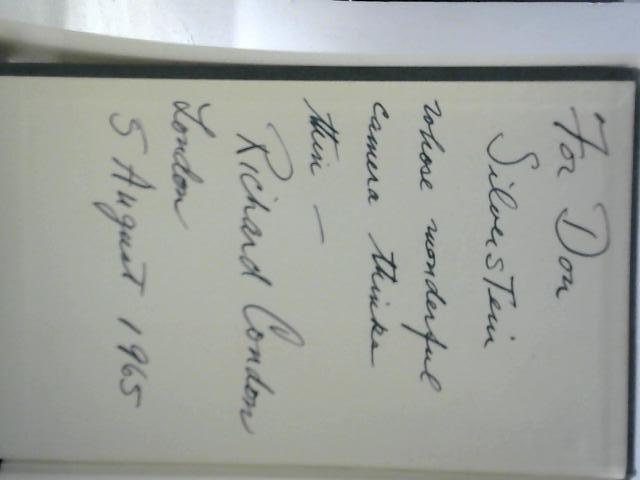 For Don
Silverstein
whose wonderful
camera thinks
thin —
Richard Condon
London
5 August 1965